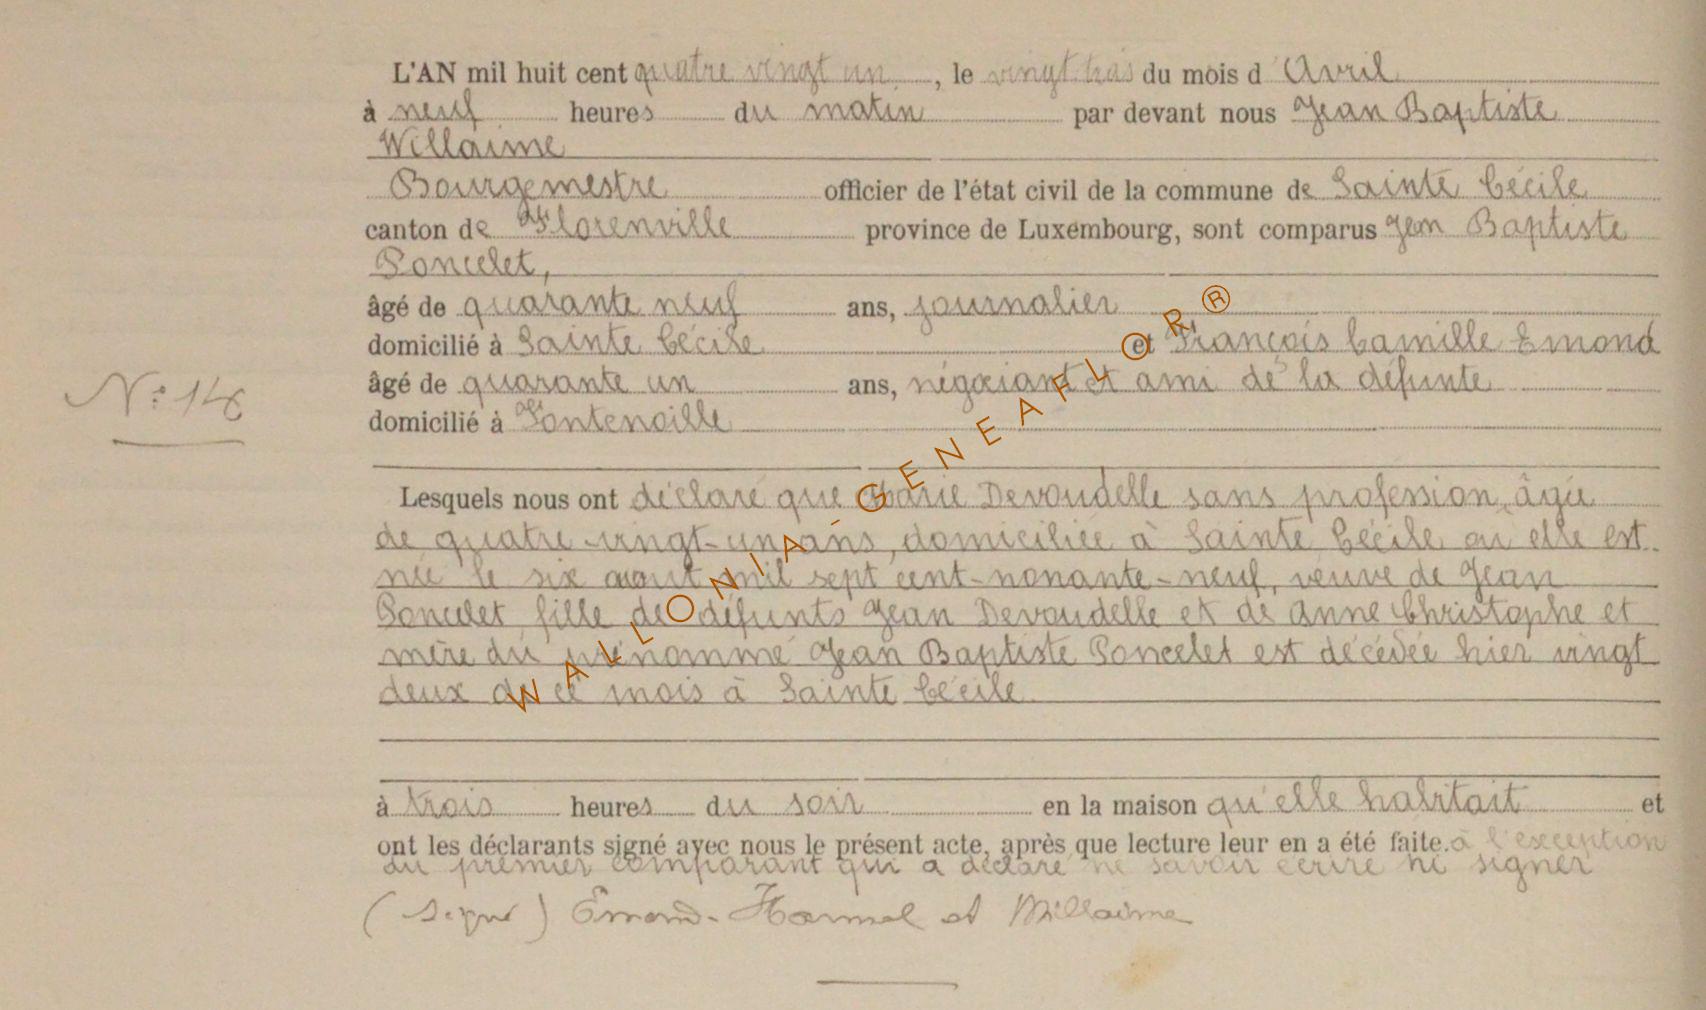 L'AN mil huit cent quatre vingt un, le vingt trois du mois d'Avril
à neuf heures du matin par devant nous Jean Baptiste
Willaime
Bourgemestre officier de l'état civil de la commune de Sainte Cécile
canton de Florenville province de Luxembourg, sont comparus Jean Baptiste
Poncelet,
âgé de quarante neuf ans, journalier
domicilié à Sainte Cécile et François Camille Emond
N° 14
âgé de quarante un ans, négociant et ami de la défunte
domicilié à Fontenoille
Lesquels nous ont déclaré que Marie Devoudelle sans profession, âgée
de quatre-vingt-un ans, domiciliée à Sainte Cécile où elle est
née le six août mil sept cent-nonante-neuf, veuve de Jean
Poncelet fille de défunts Jean Devoudelle et de Anne Christophe et
mère du prénommé Jean Baptiste Poncelet est décédée hier vingt
deux de ce mois à Sainte Cécile.
à trois heures du soir en la maison qu'elle habitait et
ont les déclarants signé avec nous le présent acte, après que lecture leur en a été faite. à l'exception
du premier comparant qui a déclaré ne savoir écrire ni signer
(Signé) Emond-Hamel et Willaime
WALLONIA-GENEAFLOR®